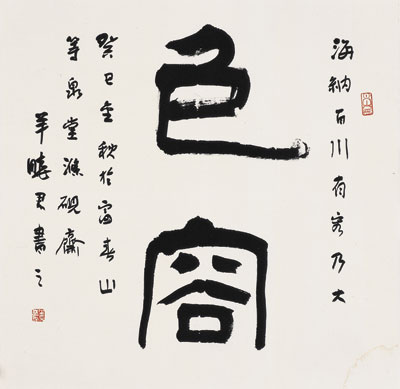 海納百川有容乃大
包容
癸巳金秋於富春山
泉堂滌硯齋
羊曉君書之